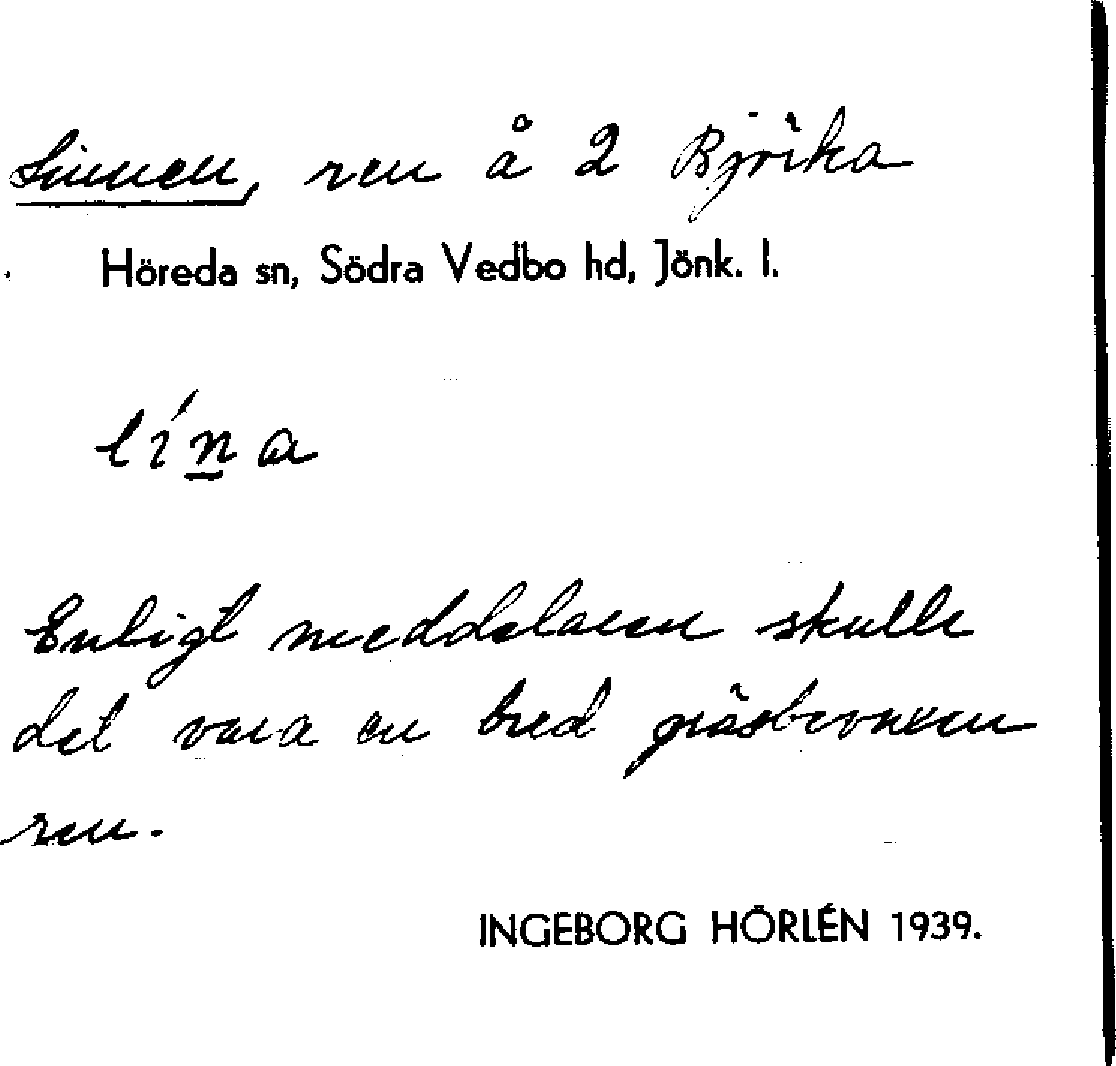 Linnen, ren å 2
Höreda sn, Södra Vedbo hd, Jönk. l.
lína
Enligt meddelaren skulle
det vara en bred gräsbevuxen
ren.
INGEBORG HÖRLÉN 1939.